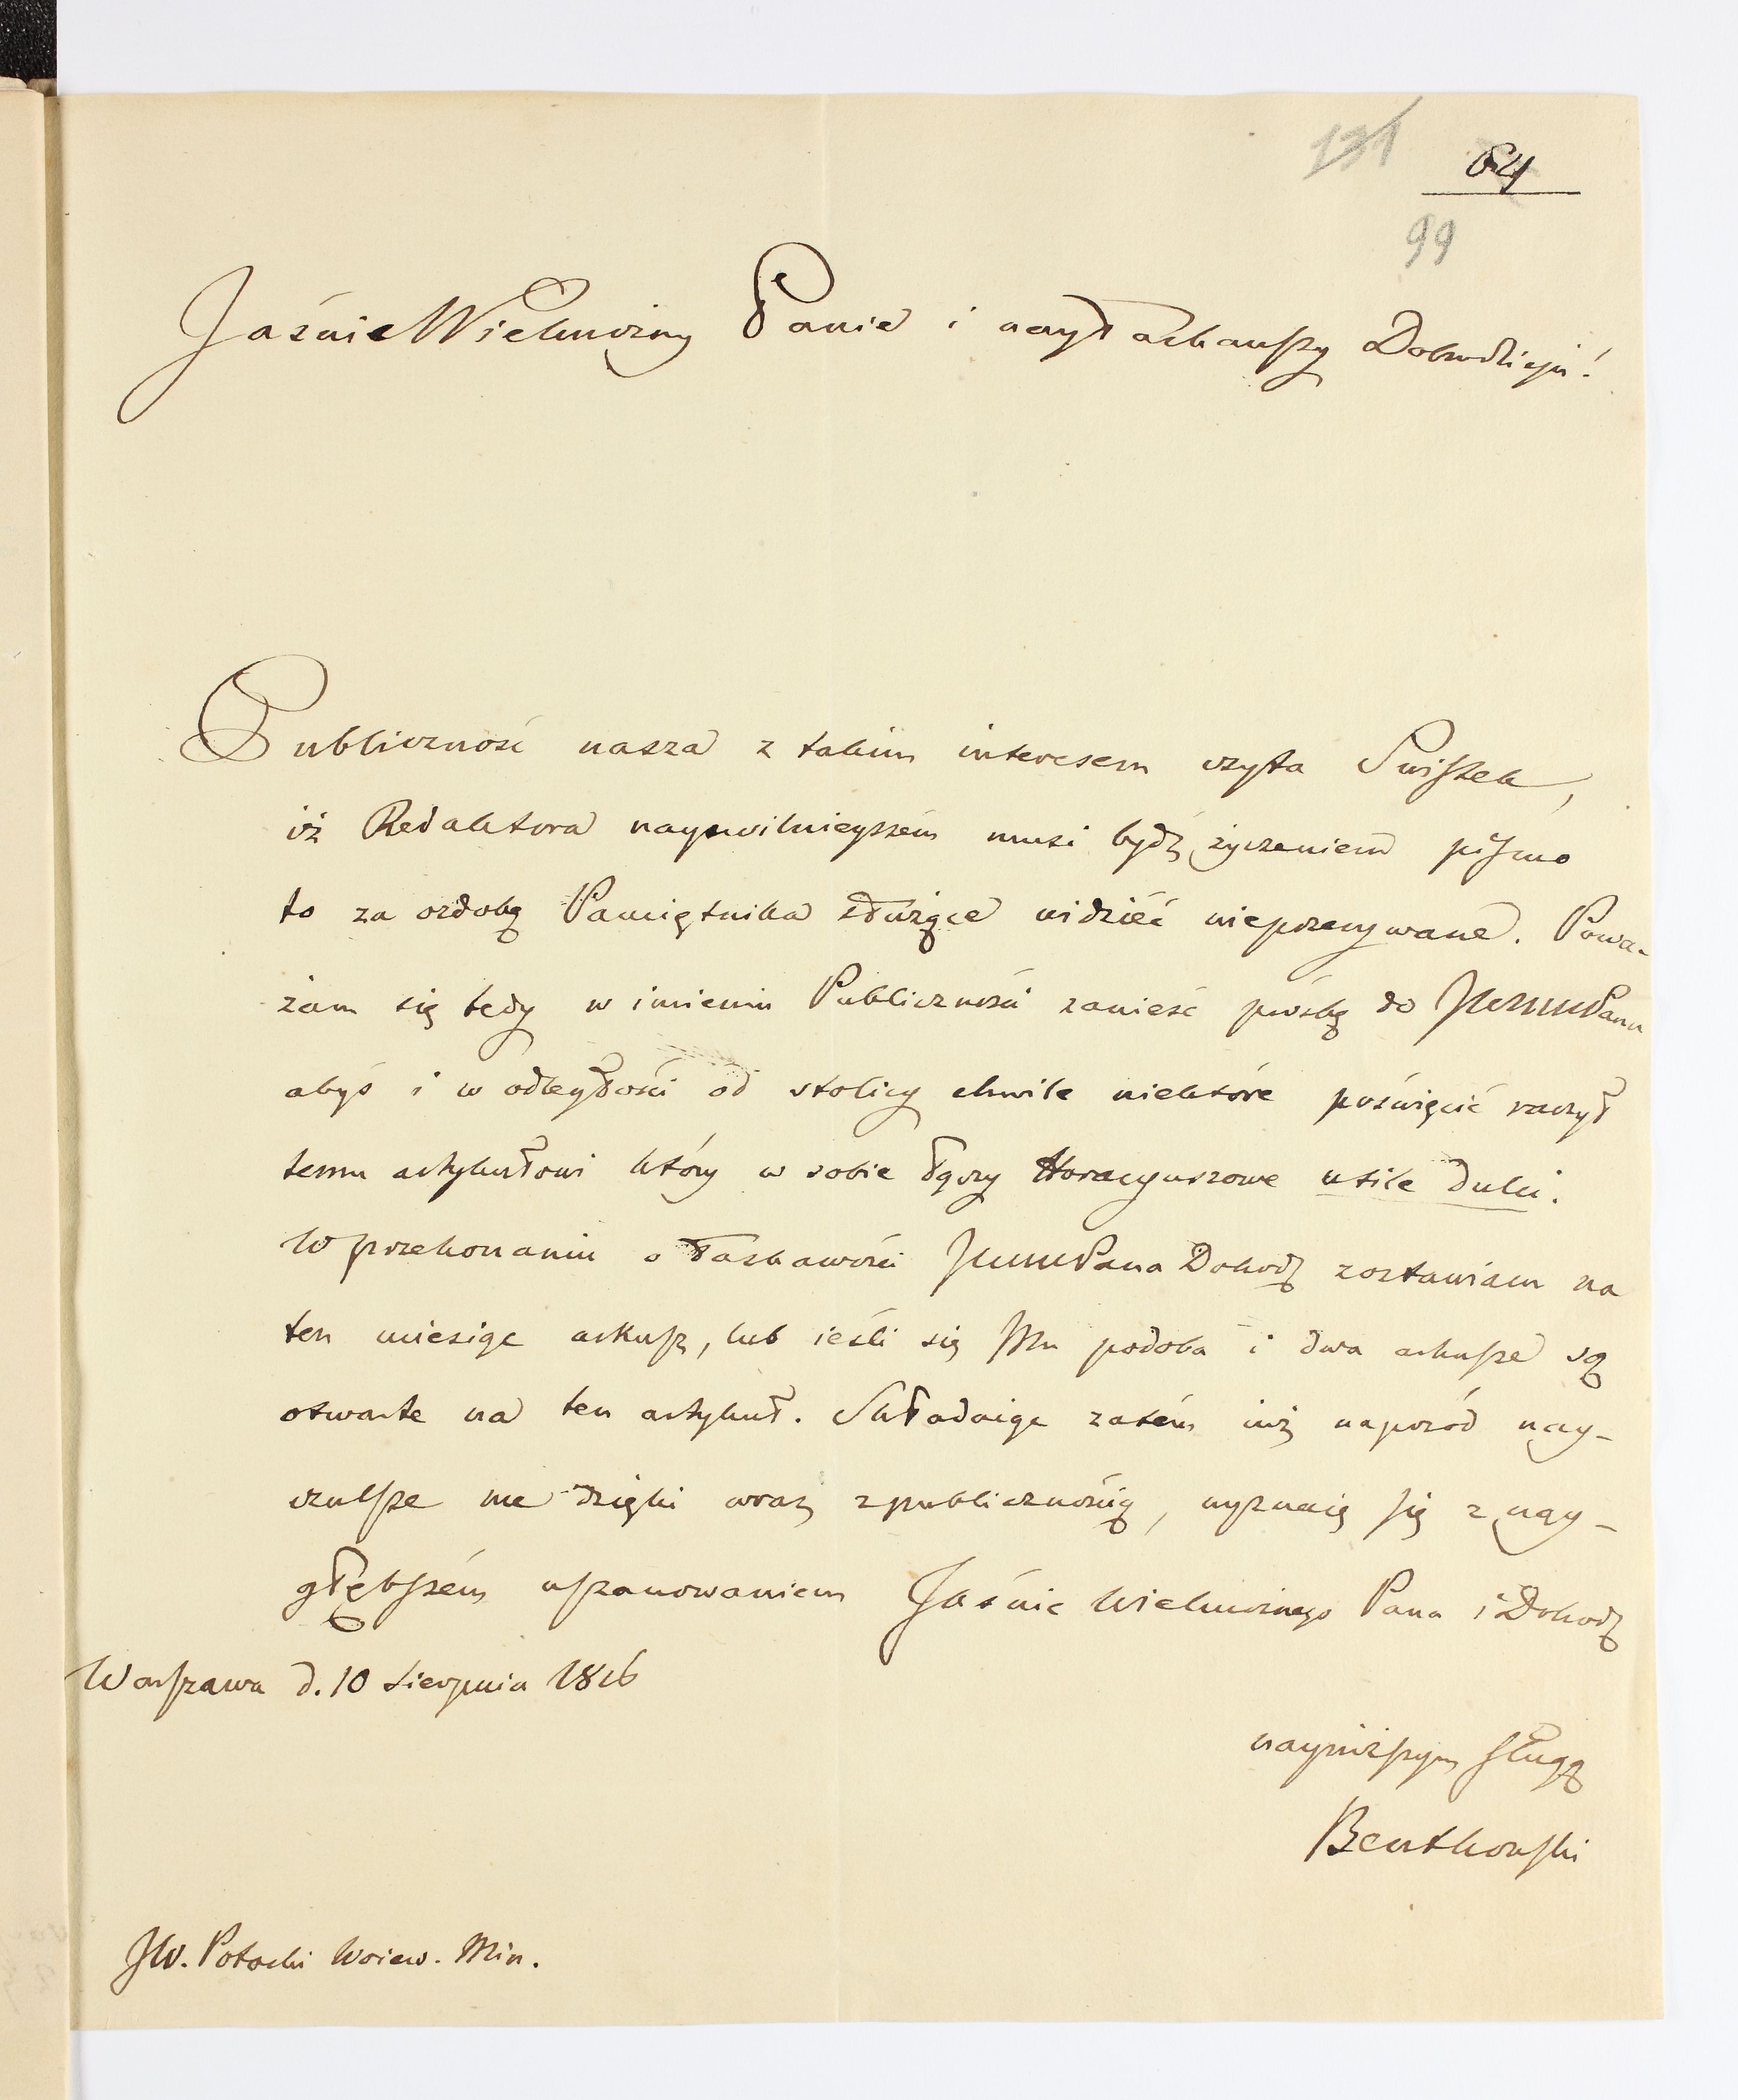 131
64
99
Jaśnie Wielmożny Panie i nayłaskawszy Dobrodzieju!
Publiczność nasza z takim interesem czyta Swistek,
iż Redaktora naypilnieyszém musi bydź życzeniem pismo
to za ozdobę Pamiętnika służące widzieć nieprzerywane. Powa-
żam się tedy w imieniu Publiczności zanieść prośbę do JWWMPana
abyś i w odległości od stolicy chwile niektóre poświęcić raczył
temu artykułowi który w sobie łączy Horacyuszowe utile dulci.
W przekonaniu o łaskawości JWWMPana Dobrodz zostawiam na
ten miesiąc arkusz, lub ieśli się Mu podoba i dwa arkusze są
otwarte na ten artykuł. Składaiąc zatém iuż naprzód nay-
czulsze me dzięki wraz z publicznością, wyznaię się z nay-
głębszém uszanowaniem Jaśnie Wielmożnego Pana i Dobrodz
Warszawa d. 10 Sierpnia 1816
nayniższym sługą
Bentkowski
JW. Potocki Woiew. Min.